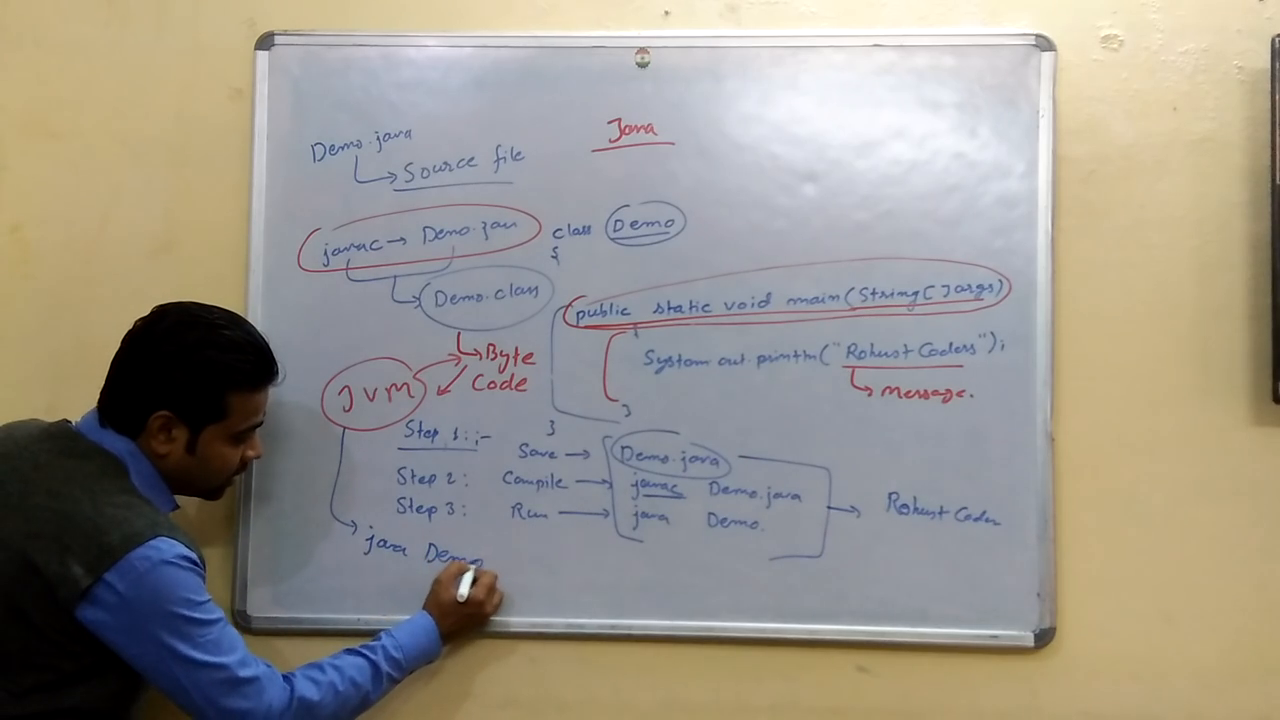 Java
Demo.java
Source file
javac → Demo.java
class Demo
{
Demo.class
public static void main(String[]args)
{
System.out.println("Robust Coders");
Message.
}
}
Byte
Code
JVM
Step 1:- Save → Demo.java
Step 2: Compile → javac Demo.java
Step 3: Run → java Demo.
Robust Coder
java Demo